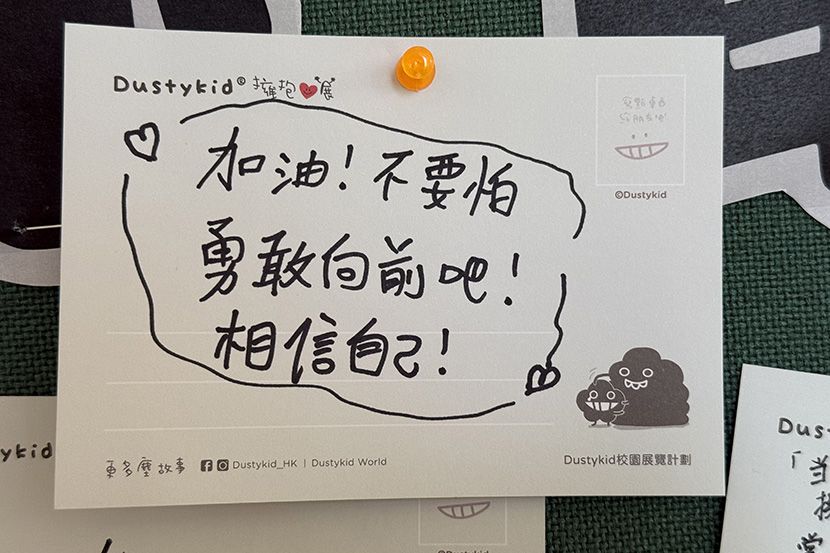 Dustykid® 擁抱展
©Dustykid
加油！不要怕
勇敢向前吧！
相信自己！
更多塵故事 Dustykid_HK | Dustykid World
Dustykid校園展覽計劃
ykid
Dus
「当